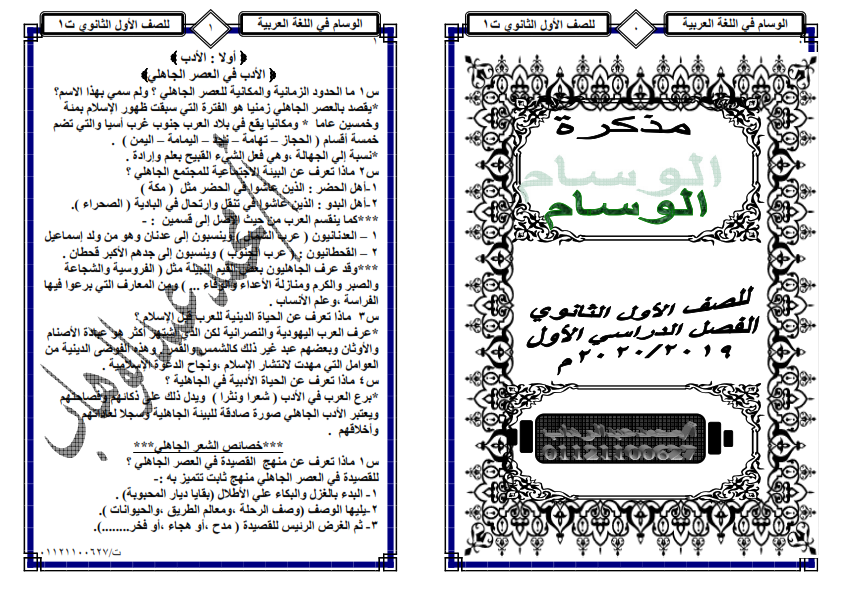 الوسام في اللغة العربية
٠
للصف الأول الثانوي ت١
مذكرة
الوسام
الوسام
للصف الأول الثانوي
الفصل الدراسي الأول
٢٠١٩/٢٠٢٠م
01121100627
الوسام في اللغة العربية
١
للصف الأول الثانوي ت١
١
﴿ أولا : الأدب ﴾
﴿ الأدب في العصر الجاهلي ﴾
س١ ما الحدود الزمانية والمكانية للعصر الجاهلي ؟ ولم سمي بهذا الاسم؟
*يقصد بالعصر الجاهلي زمنيا هو الفترة التي سبقت ظهور الإسلام بمئة
وخمسين عاما * ومكانيا يقع في بلاد العرب جنوب غرب أسيا والتي تضم
خمسة أقسام ( الحجاز – تهامة – نجد – اليمامة – اليمن ) .
*نسبة إلي الجهالة ،وهي فعل الشيء القبيح بعلم وإرادة .
س٢ ماذا تعرف عن البيئة الاجتماعية للمجتمع الجاهلي ؟
١-أهل الحضر : الذين عاشوا في الحضر مثل ( مكة )
٢-أهل البدو : الذين عاشوا في تنقل وارتحال في البادية ( الصحراء ).
***كما ينقسم العرب من حيث الأصل إلى قسمين : -
١ – العدنانيون ( عرب الشمال) وينسبون إلى عدنان وهو من ولد إسماعيل
٢ – القحطانيون : ( عرب الجنوب ) وينسبون إلى جدهم الأكبر قحطان .
***وقد عرف الجاهليون بعض القيم النبيلة مثل ( الفروسية والشجاعة
والصبر والكرم ومنازلة الأعداء والوفاء ... ) ومن المعارف التي برعوا فيها
الفراسة ،وعلم الأنساب .
س٣ ماذا تعرف عن الحياة الدينية للعرب قبل الإسلام ؟
*عرف العرب اليهودية والنصرانية لكن الذي اشتهر أكثر هو عبادة الأصنام
والأوثان وبعضهم عبد غير ذلك كالشمس والقمر وهذه الفوضى الدينية من
العوامل التي مهدت لانتشار الإسلام ،ونجاح الدعوة الإسلامية .
س٤ ماذا تعرف عن الحياة الأدبية في الجاهلية ؟
*برع العرب في الأدب ( شعرا ونثرا ) ويدل ذلك على ذكائهم وفصاحتهم
ويعتبر الأدب الجاهلي صورة صادقة للبيئة الجاهلية وسجلا لعاداتهم
وأخلاقهم .
***خصائص الشعر الجاهلي***
س١ ماذا تعرف عن منهج القصيدة في العصر الجاهلي ؟
للقصيدة في العصر الجاهلي منهج ثابت تتميز به :-
١- البدء بالغزل والبكاء علي الأطلال (بقايا ديار المحبوبة) .
٢-يليها الوصف (وصف الرحلة ،ومعالم الطريق ،والحيوانات ).
٣- ثم الغرض الرئيس للقصيدة ( مدح ،أو هجاء ،أو فخر........).
ت/٠١١٢١١٠٠٦٢٧